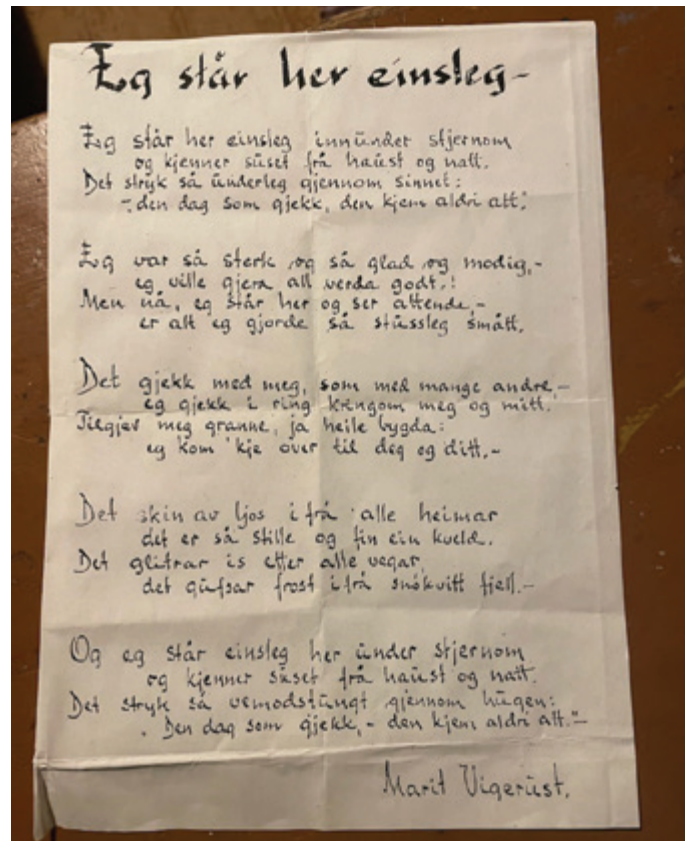 Eg står her einsleg-
Eg står her einsleg innunder stjernom
og kjenner suset frå haust og natt.
Det stryk så underleg gjennom sinnet:
"den dag som gjekk, den kjem aldri att."
Eg var så sterk og så glad og modig,-
eg ville gjera all verda godt.!
Men nå, eg står her og ser attende,-
er alt eg gjorde så stussleg smått.
Det gjekk med meg, som med mange andre,-
eg gjekk i ring kringom meg og mitt.
Tilgjev meg granne, ja heile bygda:
eg kom 'kje over til deg og ditt.-
Det skin av ljos ifrå alle heimar
det er så stille og fin ein kveld.
Det glitrar is etter alle vegar,
det gufsar frost ifrå snökvitt fjell.-
Og eg står einsleg her under stjernom
og kjenner suset frå haust og natt.
Det stryk så vemodstungt gjennom hugen:
"Den dag som gjekk,- den kjem aldri att."-
Marit Vigerust.